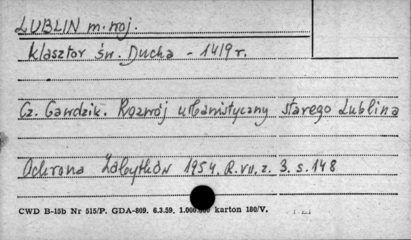 LUBLIN m. woj.
klasztor św. Ducha - 1419 r.
Cz. Gawdzik. Rozwój urbanistyczny starego Lublina
Ochrona Zabytków 1954. R. VII. z. 3. s. 148
CWD B-15b Nr 515/P. GDA-809. 6.3.59. 1.000.000 karton 180/V.